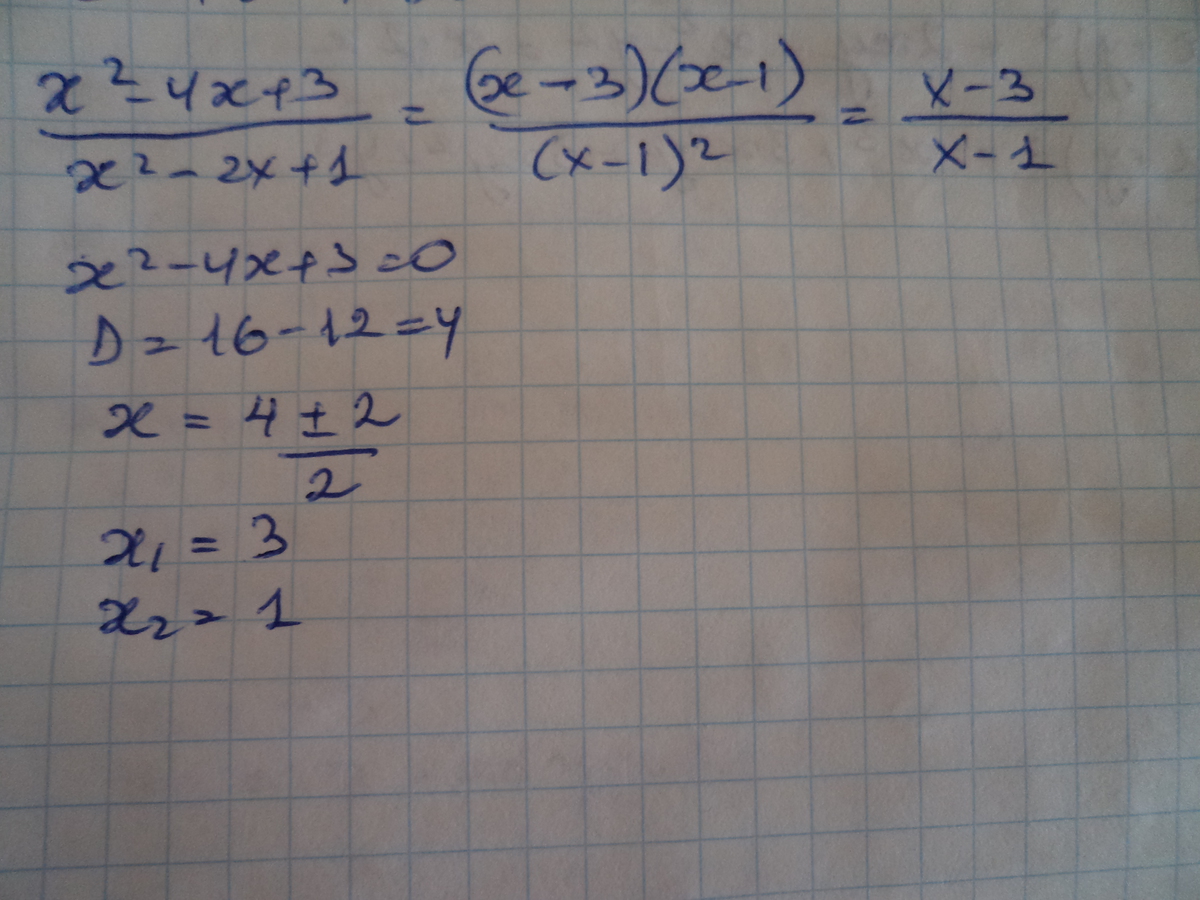 (x² - 4x + 3)/(x² - 2x + 1) = ((x - 3)(x - 1))/((x - 1)²) = (x - 3)/(x - 1)
x² - 4x + 3 = 0
D = 16 - 12 = 4
x = (4 ± 2)/2
x₁ = 3
x₂ = 1